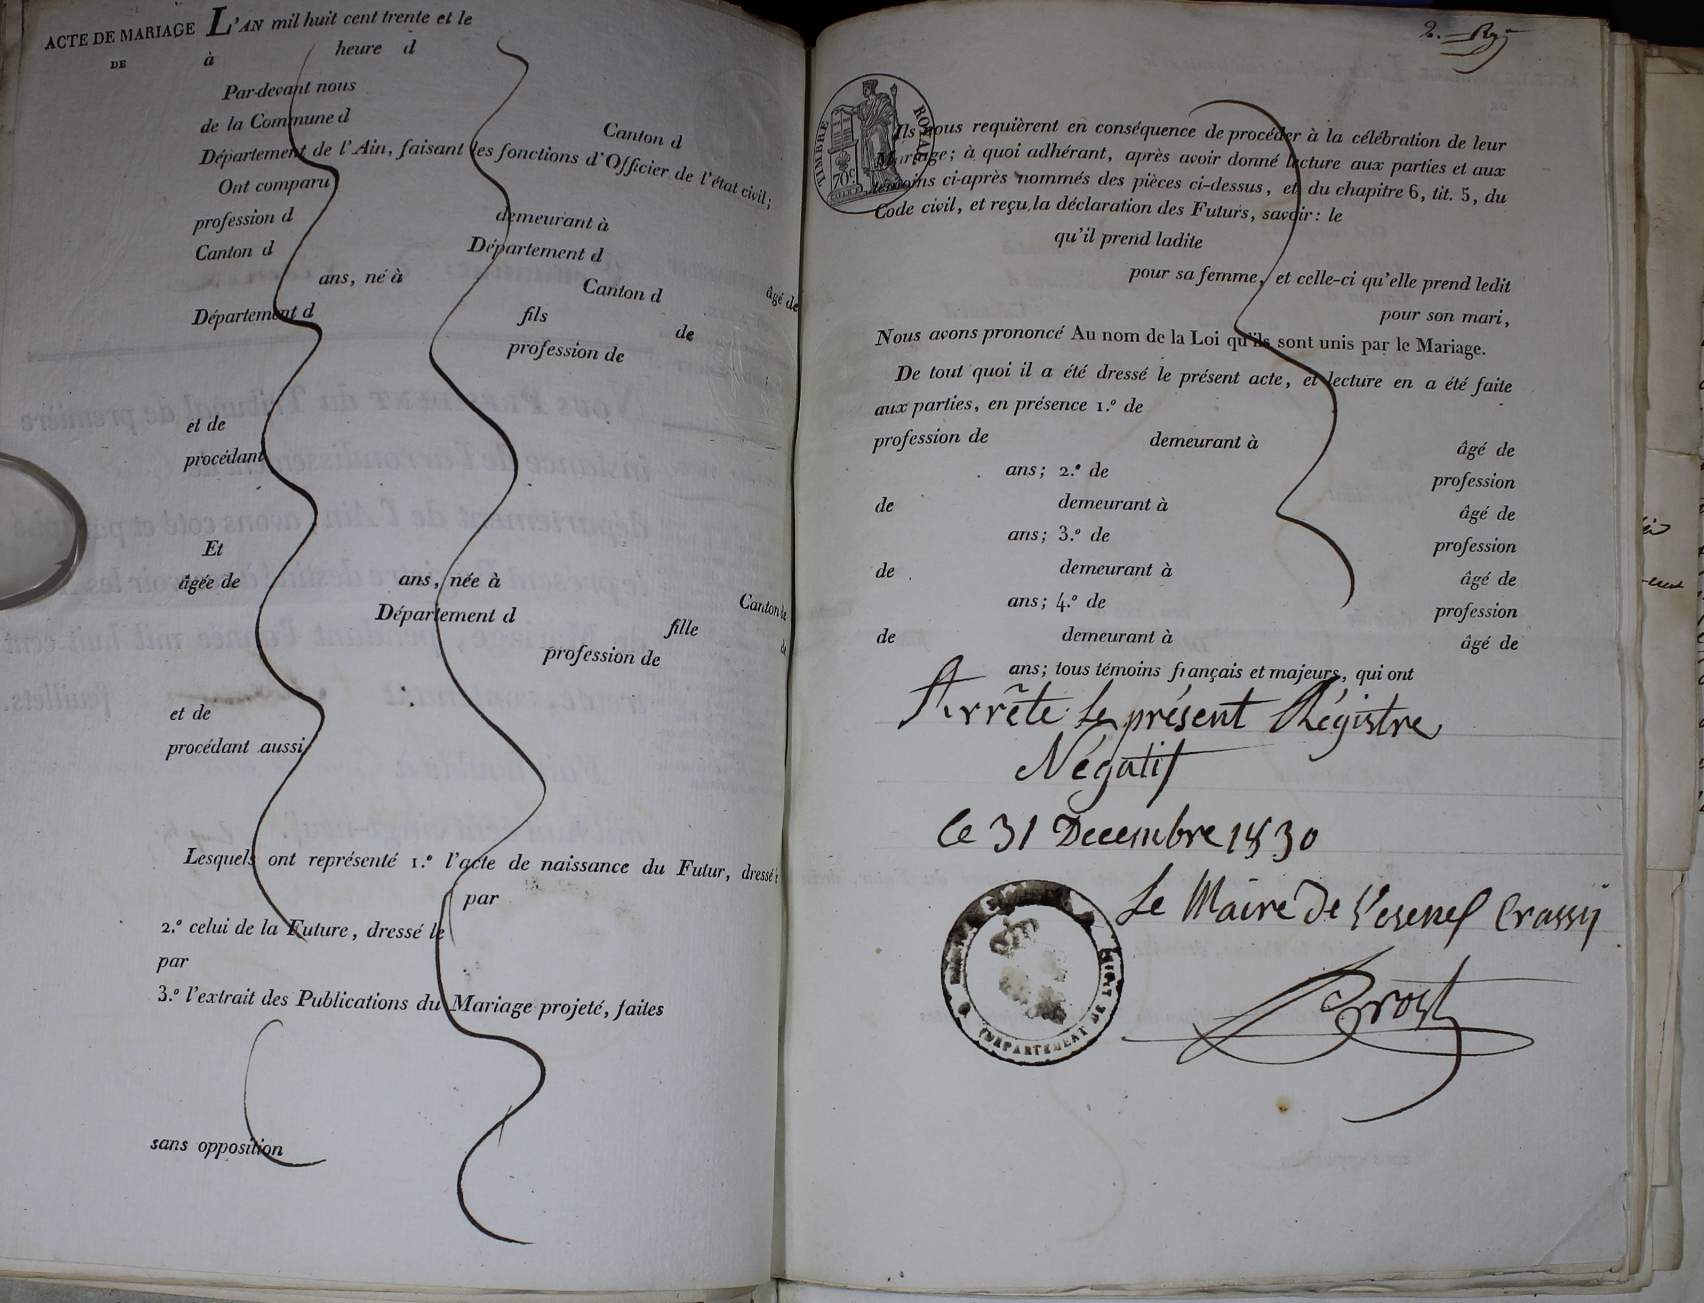 ACTE DE MARIAGE L'AN mil huit cent trente et le
DE à heure d
Par-devant nous
de la Commune d Canton d
Département de l'Ain, faisant les fonctions d'Officier de l'état civil;
Ont comparu
profession d demeurant à
Canton d Département d âgé de
ans, né à Canton d
Département d fils de
profession de
et de
procédant
Et
âgée de ans, née à Canton de
Département d fille de
profession de
et de
procédant aussi
Lesquels ont représenté 1.º l'acte de naissance du Futur, dressé
par
2.º celui de la Future, dressé le
par
3.º l'extrait des Publications du Mariage projeté, faites
sans opposition
2.
TIMBRE ROYAL
70c
Ils nous requièrent en conséquence de procéder à la célébration de leur
Mariage; à quoi adhérant, après avoir donné lecture aux parties et aux
témoins ci-après nommés des pièces ci-dessus, et du chapitre 6, tit. 5, du
Code civil, et reçu la déclaration des Futurs, savoir: le
qu'il prend ladite
pour sa femme, et celle-ci qu'elle prend ledit
pour son mari,
Nous avons prononcé Au nom de la Loi qu'ils sont unis par le Mariage.
De tout quoi il a été dressé le présent acte, et lecture en a été faite
aux parties, en présence 1.º de
profession de demeurant à âgé de
ans; 2.º de profession
de demeurant à âgé de
ans; 3.º de profession
de demeurant à âgé de
ans; 4.º de profession
de demeurant à âgé de
ans; tous témoins français et majeurs, qui ont
Arrête le présent Régistre
Négatif
Ce 31 Decembre 1830
Le Maire De Vesenex Crassy
DEPARTEMENT DE
Brost